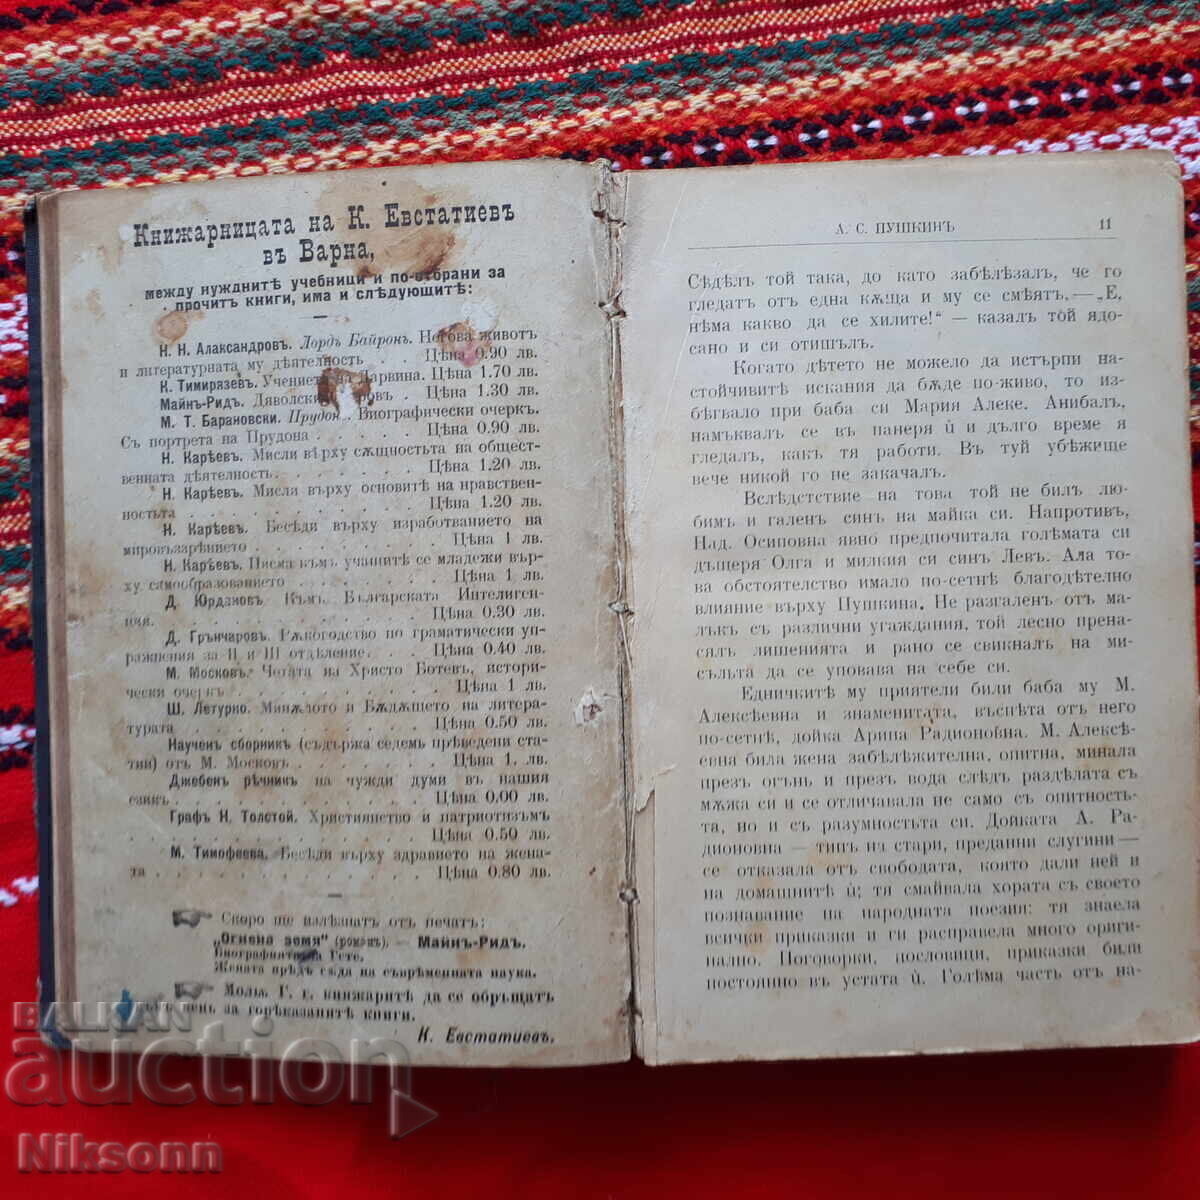 Книжарницата на К. Евстатиевъ
въ Варна,
между нужднитѣ учебници и по-отбрани за
прочитъ книги, има и слѣдующитѣ:
Н. Н. Алаксандровъ. Лордъ Байронъ. Негова животъ
и литературната му дѣятелность . . . Цѣна 0.90 лв.
К. Тимирязевъ. Учението на Дарвина. Цѣна 1.70 лв.
Майнъ-Ридъ. Дяволский островъ . Цѣна 1.30 лв.
М. Т. Барановски. Прудонъ. Биографически очеркъ.
Съ портрета на Прудона . . . . . Цѣна 0.90 лв.
Н. Карѣевъ. Мисли върху сѫщностьта на общест-
венната дѣятелность . . . . . . . Цѣна 1.20 лв.
Н. Карѣевъ. Мисли върху основитѣ на нравствен-
ностьта . . . . . . . . . . . . Цѣна 1.20 лв.
Н. Карѣевъ. Бесѣди върху изработванието на
мировъззрѣнието . . . . . . . . . Цѣна 1 лв.
Н. Карѣевъ. Писма къмъ учащитѣ се младежи вър-
ху самообразованието . . . . . . . Цѣна 1 лв.
Д. Юрдановъ. Къмъ Българската Интелиген-
ция. . . . . . . . . . . . . . Цѣна 0.30 лв.
Д. Грънчаровъ. Рѫководство по граматически уп-
ражнения за II и III отдѣление . . . Цѣна 0.40 лв.
М. Московъ. Четата на Христо Ботевъ, истори-
чески очеркъ . . . . . . . . . . Цѣна 1 лв.
Ш. Летурно. Минѫлото и Бѫдѫщето на литера-
турата . . . . . . . . . . . . Цѣна 0.50 лв.
Наученъ сборникъ (съдържа седемь прѣведени ста-
тии) отъ М. Московъ . . . . . . . Цѣна 1. лв.
Джебенъ рѣчникъ на чужди думи въ нашия
езикъ . . . . . . . . . . . . . Цѣна 0.00 лв.
Графъ Н. Толстой. Християнство и патриотизъмъ
. . . . . . . . . . . . . . . Цѣна 0.50 лв.
М. Тимофеева. Бесѣди върху здравието на жена-
та . . . . . . . . . . . . . . Цѣна 0.80 лв.
Скоро ще излѣзнатъ отъ печатъ:
„Огнена земя" (романъ). — Майнъ-Ридъ.
Биографията на Гете.
Жената прѣдъ сѫда на съврѣменната наука.
Молѭ Г. г. книжаритѣ да се обръщатъ
къмъ мень за горѣказанитѣ книги.
К. Евстатиевъ.
А. С. ПУШКИНЪ 11
Сѣдѣлъ той така, до като забѣлѣзалъ, че го
гледатъ отъ една кѫща и му се смѣятъ, — „Е,
нѣма какво да се хилите!" — казалъ той ядо-
сано и си отишълъ.
Когато дѣтето не можело да истърпи на-
стойчивитѣ искания да бѫде по-живо, то из-
бѣгвало при баба си Мария Алекс. Анибалъ,
намъквалъ се въ панеря ѝ и дълго време я
гледалъ, какъ тя работи. Въ туй убѣжище
вече никой го не закачалъ.
Вслѣдствие на това той не билъ лю-
бимъ и галенъ синъ на майка си. Напротивъ,
Над. Осиповна явно предпочитала голѣмата си
дъщеря Олга и милкия си синъ Левъ. Ала то-
ва обстоятелство имало по-сетнѣ благодѣтелно
влияние върху Пушкина. Не разгаленъ отъ ма-
лъкъ съ различни угаждания, той лесно прена-
сялъ лишенията и рано се свикналъ на ми-
съльта да се уповава на себе си.
Едничкитѣ му приятели били баба му М.
Алексѣевна и знаменитата, въспѣта отъ него
по-сетнѣ, дойка Арина Радионовна. М. Алексѣ-
евна била жена забѣлѣжителна, опитна, минала
презъ огънь и презъ вода слѣдъ раздѣлата съ
мѫжа си и се отличавала не само съ опитность-
та, но и съ разумностьта си. Дойката А. Ра-
дионовна — типъ на стари, преданни слугини —
се отказала отъ свободата, която дали ней и
на домашнитѣ ѝ; тя смайвала хората съ своето
познавание на народната поезия: тя знаела
всички приказки и ги расправела много ориги-
нално. Поговорки, пословици, приказки били
постоянно въ устата ѝ. Голѣма часть отъ на-
BALKAN
auction
Niksonn